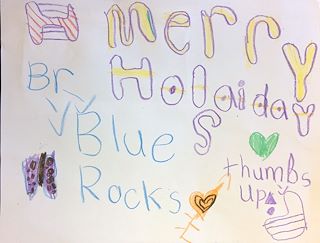 Merry
Holaiday
S
Br
Blue
Rocks
thumbs
up